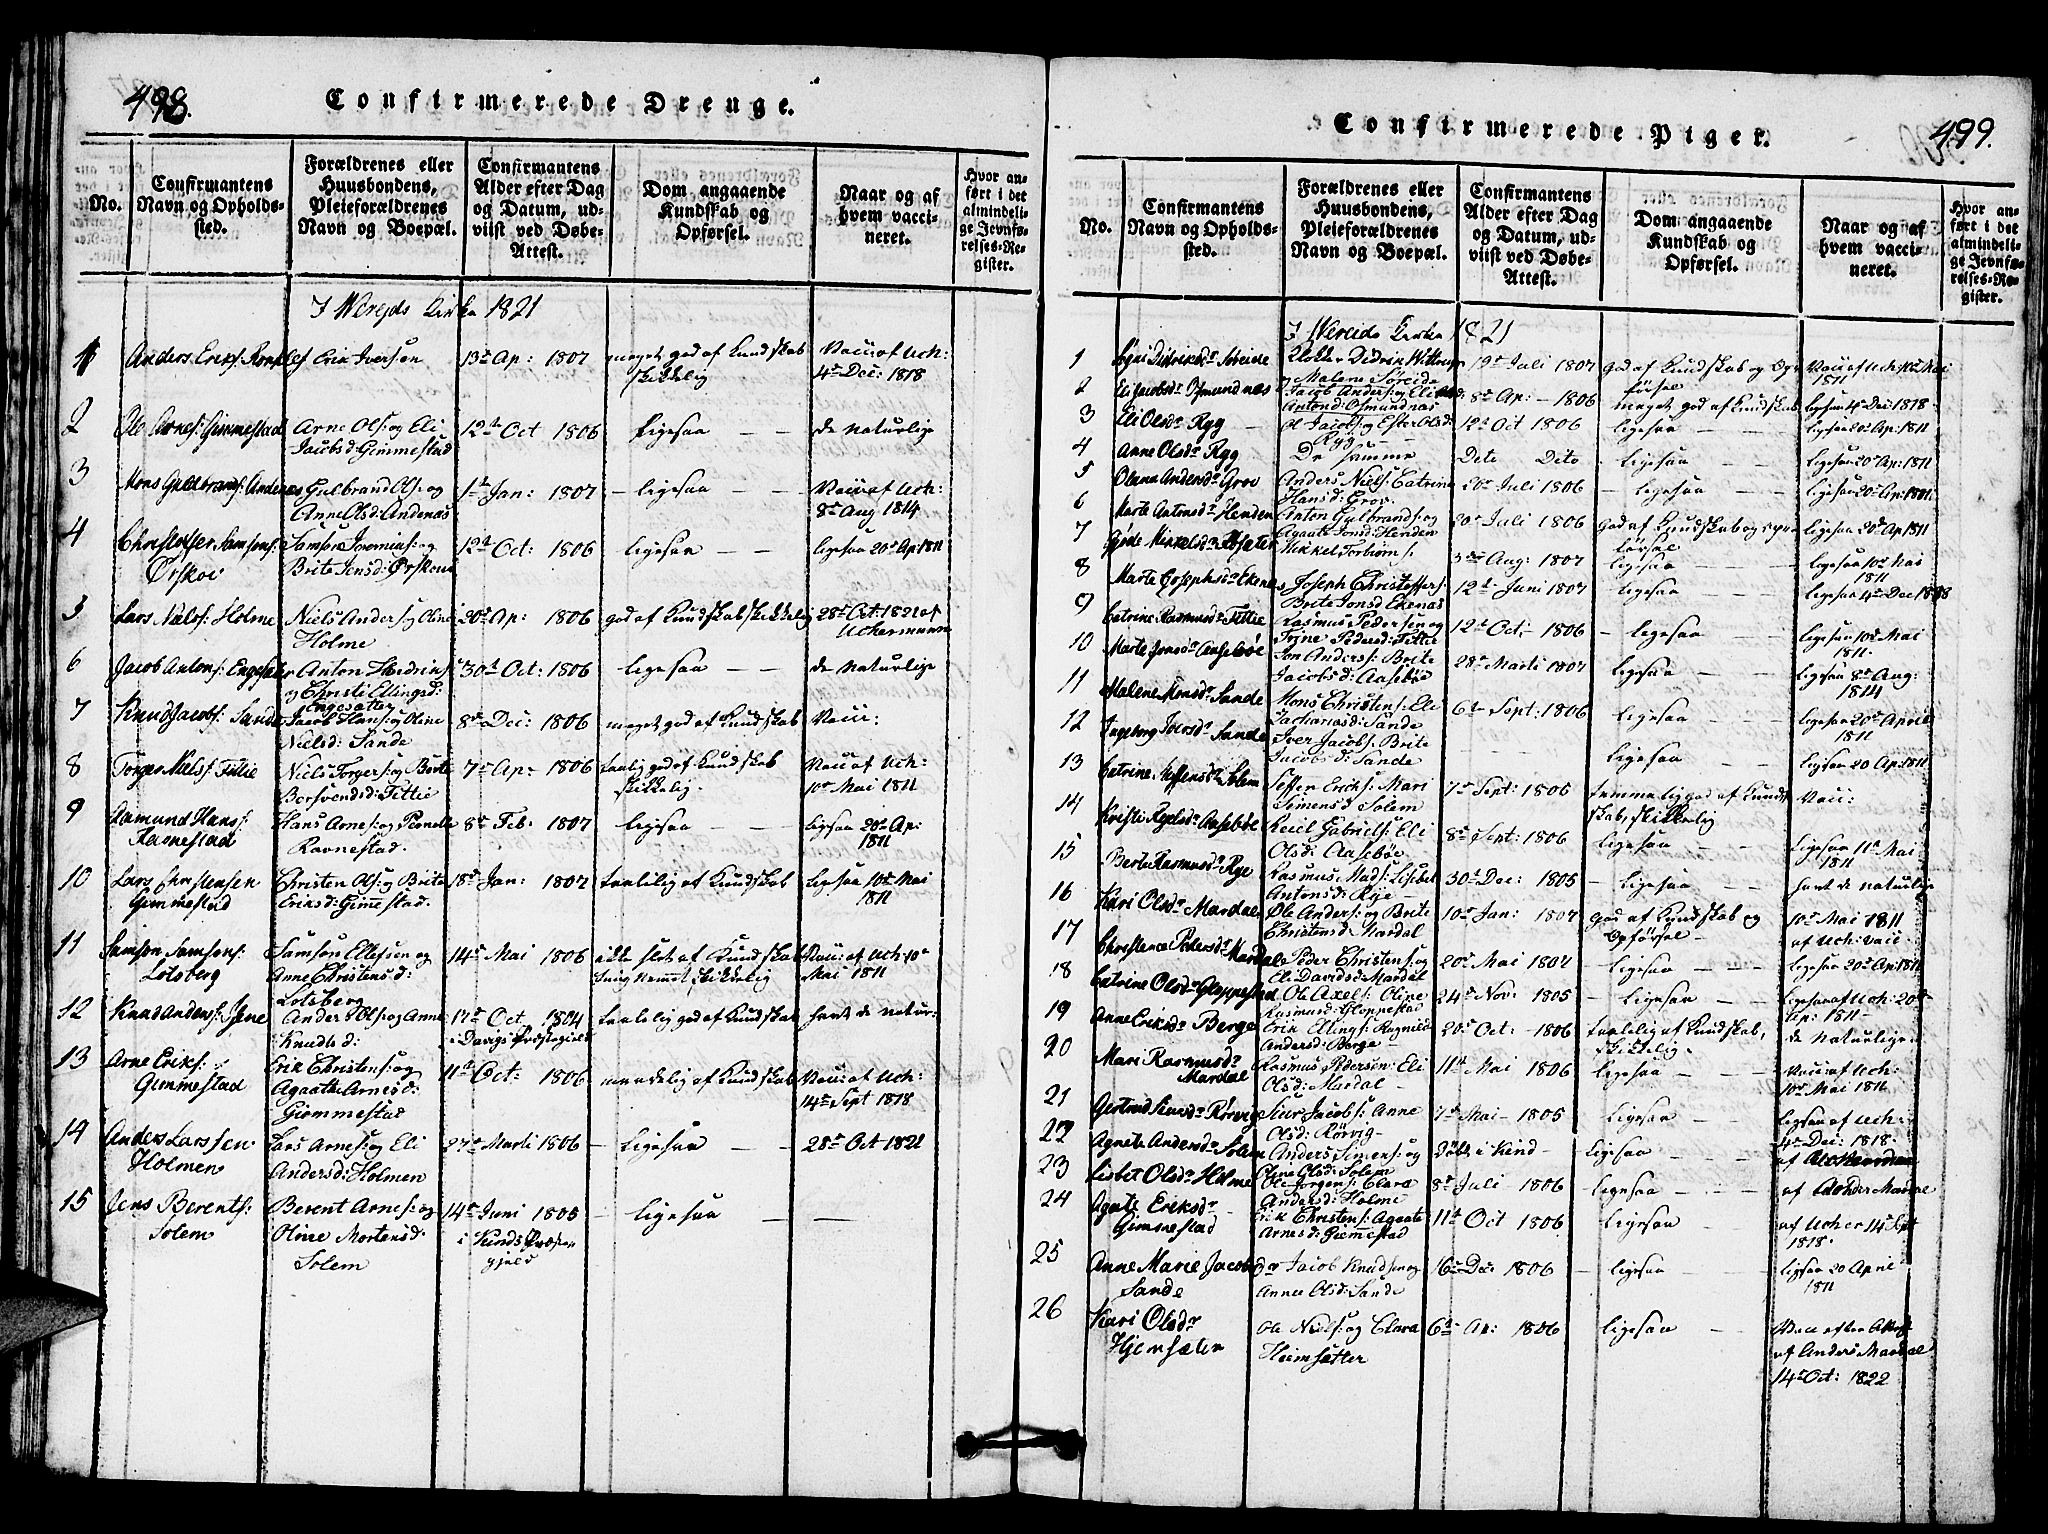 498.
Confirmerede Drenge.
No.
Confirmantens Navn og Opholds-sted.
Forældrenes eller Huusbondens, Pleieforældrenes Navn og Boepæl.
Confirmantens Alder efter Dag og Datum, ud-viist ved Døbe-Attest.
Dom angaaende Kundskab og Opførsel.
Naar og af hvem vacci-neret.
Hvor an-ført i det almindeli-ge Jevnfø-relses-Re-gister.
Kirke 1821
1 Anders Eriks: Erik Iversen 13de Ap: 1807 meget god af Kundskab skikkelig Vacc: af Uch: 4de Dec: 1818
2 Ole Arnes: Gimmestad Arne Ols: og Eli Jacobsd: Gimmestad 12te Oct 1806 ligesaa — — de naturlige
3 Mons Guldbrands: Andenæs Gulbrand Ols: og Anne Olsd: Andenæs 1te Jan: 1807 — ligesaa — — Vacc: af Uch: 8de Aug 1814
4 Christenser Samsons: Ørskov Samson Jeremias: og Brite Jensd: Ørskov 12te Oct: 1806 ligesaa — — ligesaa 20de Ap: 1811
5 Lars Niels: Holme Niels Anders: og Oline Holme 20de Ap: 1806 god af Kundskab skikkelig 28de Oct: 1821 af Uchermann
6 Jacob Antons: Engesæter Anton Fredriks: og Christi Ellingsd: Engesætter 30te Oct: 1806 ligesaa — — de naturlige
7 Knud Jacobs: Sande Jacob Hans: og Oline Nielsd: Sande 8de Dec: 1806 meget god af Kundskab Vacc:
8 Torger Niels: Fittie Niels Torgers: og Borte Borsvendsd: Fittie 7de Ap: 1806 taalig god af Kundskab skikkelig. Vacc: af Uch: 10de Mai 1811
9 Ramund Hans: Ravnestad Hans Arnes: og Pernele Ravnestad. 8de Feb: 1807 ligesaa — — ligesaa 20de Ap: 1811
10 Lars Christensen Gimmestad Christen Ols: og Brite Eriksd: Gimmestad. 18de Jan: 1807 taalelig af Kundskab ligesaa 10de Mai 1811
11 Samson Samsons: Lotsberg Samson Ellefsen og Anne Christensd: Lotsberg 14de Mai 1806 ikke slet af Kundskab skikkelig Vacc: af Uch: 10de Mai 1811
12 Knud Anders: Anders Ols: og Anne Knudsd: 17de Oct 1804 i Davigs Præstegield taalelig god af Kundskab havt de natur:
13 Arne Eriks: Gimmestad Erik Christens: og Agaathe Arnesd: Gimmestad 11te Oct: 1806 maadelig af Kundskab Vacc: af Uch: 14de Sept 1818
14 Anders Larssen Holmen Lars Arnes: og Eli Andersd: Holmen 27de Marti 1806 — ligesaa — — 28de Oct 1821
15 Jens Berents: Solem Berent Arnes: og Oline Mortensd: Solem 14de Juni 1805 i Kinds Præste gjeld — ligesaa — —
499.
Confirmerede Piger.
No.
Confirmantens Navn og Opholds-sted.
Forældrenes eller Huusbondens, Pleieforældrenes Navn og Boepæl.
Confirmantens Alder efter Dag og Datum, ud-viist ved Døbe-Attest.
Dom angaaende Kundskab og Opførsel.
Naar og af hvem vacci-neret.
Hvor an-ført i det almindeli-ge Jevnfø-relses-Re-gister.
Kirke 1821
1 Didriksdr Søreide Klokker Didrik og Malene Søreide 19de Juli 1807 god af Kundskab og Opførsel Vacc: af Uch: Mai 1811
2 Eli Jacobsdr Osmundnæs Jacob Anders: og Eli Antond: Osmundnæs 8de Ap: — 1806 meget god af Kundskab ligesaa 4de Dec: 1818
3 Eli Olsdr Ryg Ol Jacobs: og Ester Olsd: Ryg 12te Oct 1806 ligesaa — — ligesaa 20de Ap: 1811
4 Anne Olsdr Ryg De samme Dito Dito ligesaa — — ligesaa 20de Ap: 1811
5 Olana Andersdr Grov Anders Niels: Catrine Hansd: Grov. 20de Juli 1806 — ligesaa — — ligesaa 20de Ap:
6 Marte Antonsdr Henden Anton Gulbrands: og Agaate Jonsd: Henden 20de Juli 1806 god af Kundskab og opførsel ligesaa 20de Ap 1811
7 Mikkelsdr Mikkel Torbiørn: 3de Aug: 1807 ligesaa — — ligesaa 10de Mai 1811
8 Marte Josephsdr Ekenæs Joseph Christoffers: Brite Jonsd Ekenæs 12te Juni 1807 ligesaa — — ligesaa 4de Dec 1818
9 Catrine Rasmusdr Fittie Rasmus Pedersen og Trine Pedersd: Fittie 12te Oct: — 1806 — ligesaa — ligesaa 10de Mai 1811.
10 Marte Jonsdr Aasebøe Jon Anders: Brite Jacobsd: Aasebøe 28de Marti 1807 ligesaa — ligesaa 8de Aug: 1814
11 Malene Monsdr Sande Mons Christens: Eli Zachariasd: Sande 6te Sept: 1806 ligesaa — — ligesaa 20de April 1811
12 Ingeborg Iversdr Sande Iver Jacobs: Brite Jacobsd: Sande ligesaa — — ligesaa 20 Ap: 1811
13 Catrine Steffensdr Solem Steffen Eriks: Mari Simensd Solem 7de Sept: 1806 temmelig god af Kundskab, skikkelig Vacc:
14 Kristi Aasebøe Gabriels: Eli Olsd: Aasebøe 8de Sept: 1806 ligesaa — ligesaa 11te Mai 1811
15 Berte Rasmusdr Rye Rasmus Mads: Lisbet Antonsd: Rye 30te Dec: 1805 — ligesaa — — havt de naturlige
16 Kari Olsdr Mardal Ole Anders: og Brite Christensd: Mardal 10de Jan: 1807 god af Kundskab og Opførsel 10de Mai 1811 af Uch: vacc:
17 Christence Pedersdr Mardal Peder Christens: og Eli Davidsd: Mardal 20de Mai 1807 — ligesaa — — ligesaa 20de Ap: 1811
18 Catrine Olsdr Gloppestad Ole Axels: Oline Rasmusd: Gloppestad 24de Nov: 1805 — ligesaa — — ligesaa af Uch: 20de Ap: 1811
19 Anne Eriksdr Berge Erik Ellings: Ragnild Andersd: Berge 20de Oct: — 1806 taalelig af Kundskab, skikkelig. de naturlige
20 Mari Rasmusdr Mardal Rasmus Pedersen: Eli Olsd: Mardal — 11te Mai 1806 ligesaa — — Vacc: af Uch: 10de Mai 1811
21 Gertrud Siursdr Rørvig Siur Jacobs: Anne Olsd: Rørvig — 7de Mai — 1805 ligesaa — — ligesaa af Uch: 4de Dec: 1818.
22 Agnete Andersdr Solem Anders Simens: og Oline Olsd: Solem Døbt i Kind — ligesaa — — af Uchermann
23 Lisbet Olsdr Holme Ole Jorgens: Clara Andersd: Holme 8de Juli 1806 ligesaa — — — af Anders Mardal
24 Agate Eriksdr Gimmestad Erik Christens: Agaate Arnesd: Gimmestad 11te Oct 1806 ligesaa — af Ucher 14de Sept 1818.
25 Anne Marie Jacobsdr Sande Jacob Knudsen og Anne Olsd: Sande 16de Dec 1806 — ligesaa — — ligesaa 20 April 1811
26 Kari Olsdr Hjemsæter Ole Niels: og Clara Heimsætter 6te Ap: 1806 ligesaa — — Vacc efter Attest af Anders Mardal 14de Oct: 1822